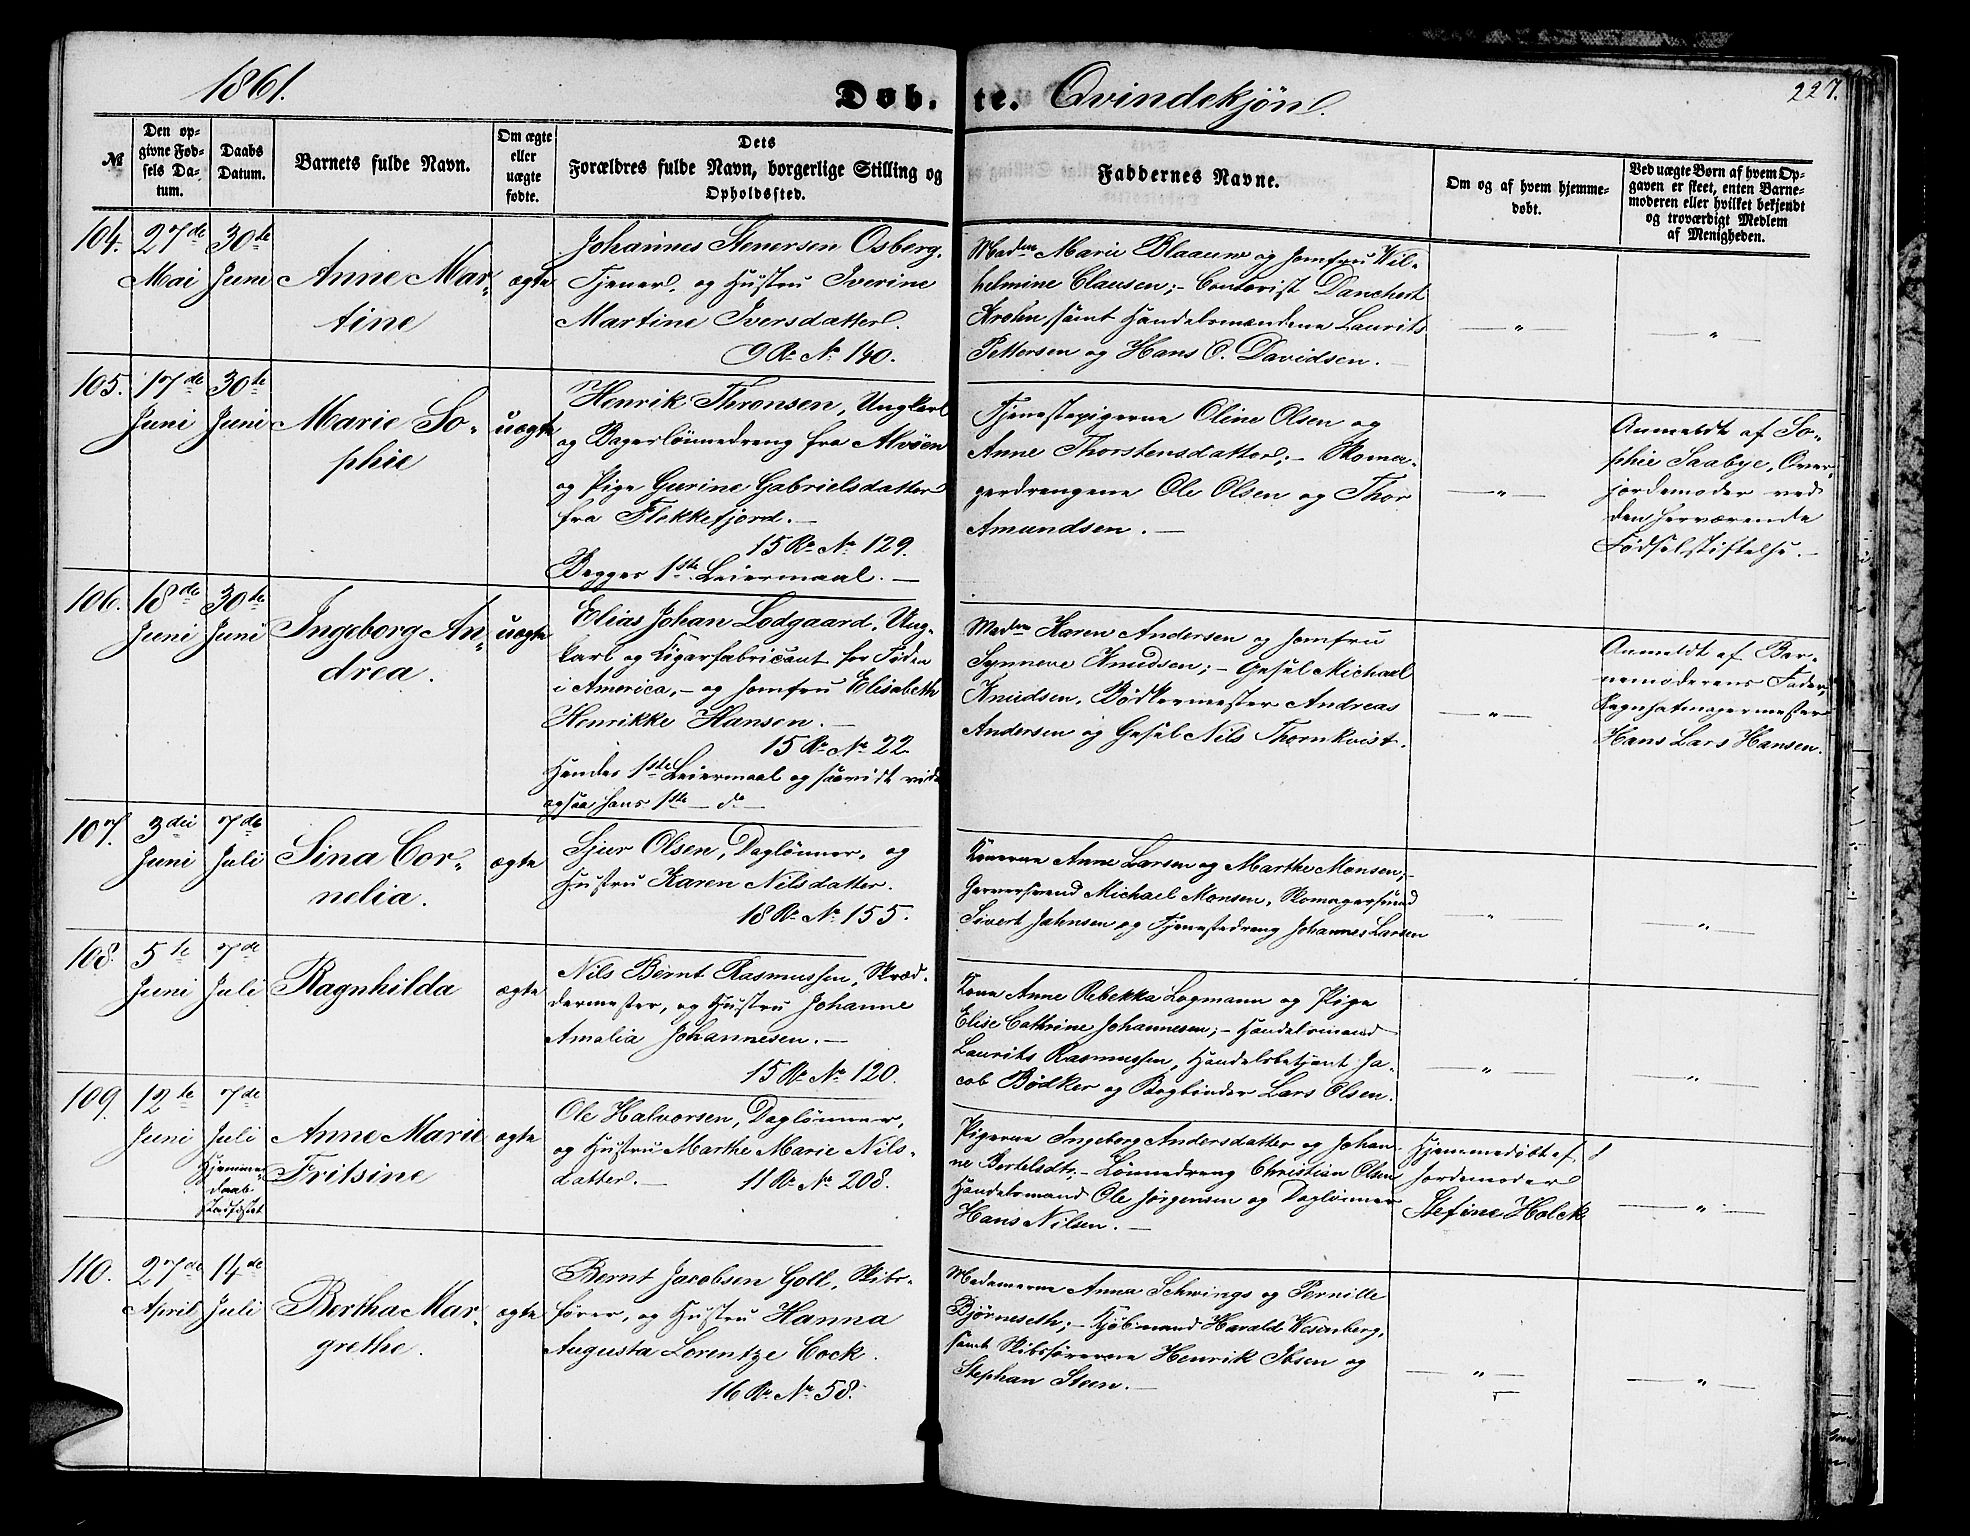 1861.
Døb-
te. Qvindekjøn.
227.
№
Den op-
givne Fød-
sels Da-
tum.
Daabs
Datum.
Barnets fulde Navn.
Om ægte
eller
uægte
fødte.
Dets
Forældres fulde Navn, borgerlige Stilling og
Opholdssted.
Faddernes Navne.
Om og af hvem hjemme-
døbt.
Ved uægte Børn af hvem Op-
gaven er skeet, enten Barne-
moderen eller hvilket bekjendt
og troværdigt Medlem
af Menigheden.
104.
27de
Mai
30te
Juni
Anne Mar-
tine
ægte
Johannes Stenersen Osberg,
Tjener, og Hustru Iverine
Martine Iversdatter.
9 R. No 140.
Madm Marie Blaauw og Jomfru Wil-
helmine Clausen; - Contorist Danchert
Krohn, samt Handelsmændene Laurits
Pettersen og Hans C. Davidsen.
— " —
— " —
105.
17de
Juni
30te
Juni
Marie So-
phie
uægte
Henrik Thronsen, Ungkarl
og Bagerlønnedreng fra Alvøen
og Pige Gurine Gabrielsdatter
fra Flekkefjord. —
15 R. No 129.
Begges 1ste Leiermaal. —
Tjenestepigerne Oline Olsen og
Anne Thorstensdatter; - Skoma-
gerdrengene Ole Olsen og Thor
Amundsen. —
— " —
Anmeldt af So-
phie Saabye, Over-
jordemoder ved
den herværende
Fødselsstiftelse. —
106.
18de
Juni
30te
Juni
Ingeborg An-
drea.
uægte
Elias Johan Lodgaard, Ung-
karl og Cigarfabricant for Tiden
i America, - og Jomfru Elisabeth
Henrikke Hansen. —
15 R. No 22
Hendes 1ste Leiermaal og saavidt vides
ogsaa hans 1ste — do —
Madm Karen Andersen og Jomfru
Synneve Knudsen; - Gesel Michael
Knudsen, Bødkermester Andreas
Andersen og Gesel Nils Thornkvist.
— " —
Anmeldt af Bar-
nemoderens Fader,
Hans Lars Hansen.
107.
3die
Juni
7de
Juli
Sina Cor-
nelia.
ægte
Sjur Olsen, Daglønner, og
Hustru Karen Nilsdatter.
18 R. No 155.
Konerne Anne Larsen og Marthe Monsen; -
Garversvend Michael Monsen, Skomagersvend
Sivert Jahnsen og Tjenestedreng Johannes Larsen
— " —
— " —
108.
5te
Juni
7de
Juli
Ragnhilda
ægte
Nils Bernt Rasmussen, Skræd-
dermester, og Hustru Johanne
Amalia Johannesen. —
15 R. No 120.
Kone Anne Rebekka Logmann og Pige
Elise Cathrine Johannesen; - Handelsmand
Laurits Rasmussen, Handelsbetjent Ja-
cob Bødker og Bogbinder Lars Olsen.
— " —
— " —
109.
12te
Juni
7de
Juli
Hjemme-
daab
stadfæstet
Anne Marie
Fritsine
ægte
Ole Halvorsen, Daglønner,
og Hustru Marthe Marie Nils-
datter. —
11 R. No 208.
Pigerne Ingeborg Andersdatter og Johan-
ne Bertelsdt; - Lønnedreng Christian Olsen
Handelsmand Ole Jørgensen og Daglønner
Hans Nilsen. —
Hjemmedøbt af
Jordemoder
Stefine Holck
— " —
110.
27de
April
14de
Juli
Bertha Mar-
grethe.
ægte
Bernt Jacobsen Goll, Skibs-
fører, og Hustru Hanna
Augusta Lorentze Cock.
16 R. No 58.
Madamerne Anna Schwings og Pernille
Bjørneseth; - Kjøbmand Harald Wesenberg,
samt Skibsførerne Henrik Ibsen og
Stephan Steen. —
— " —
— " —